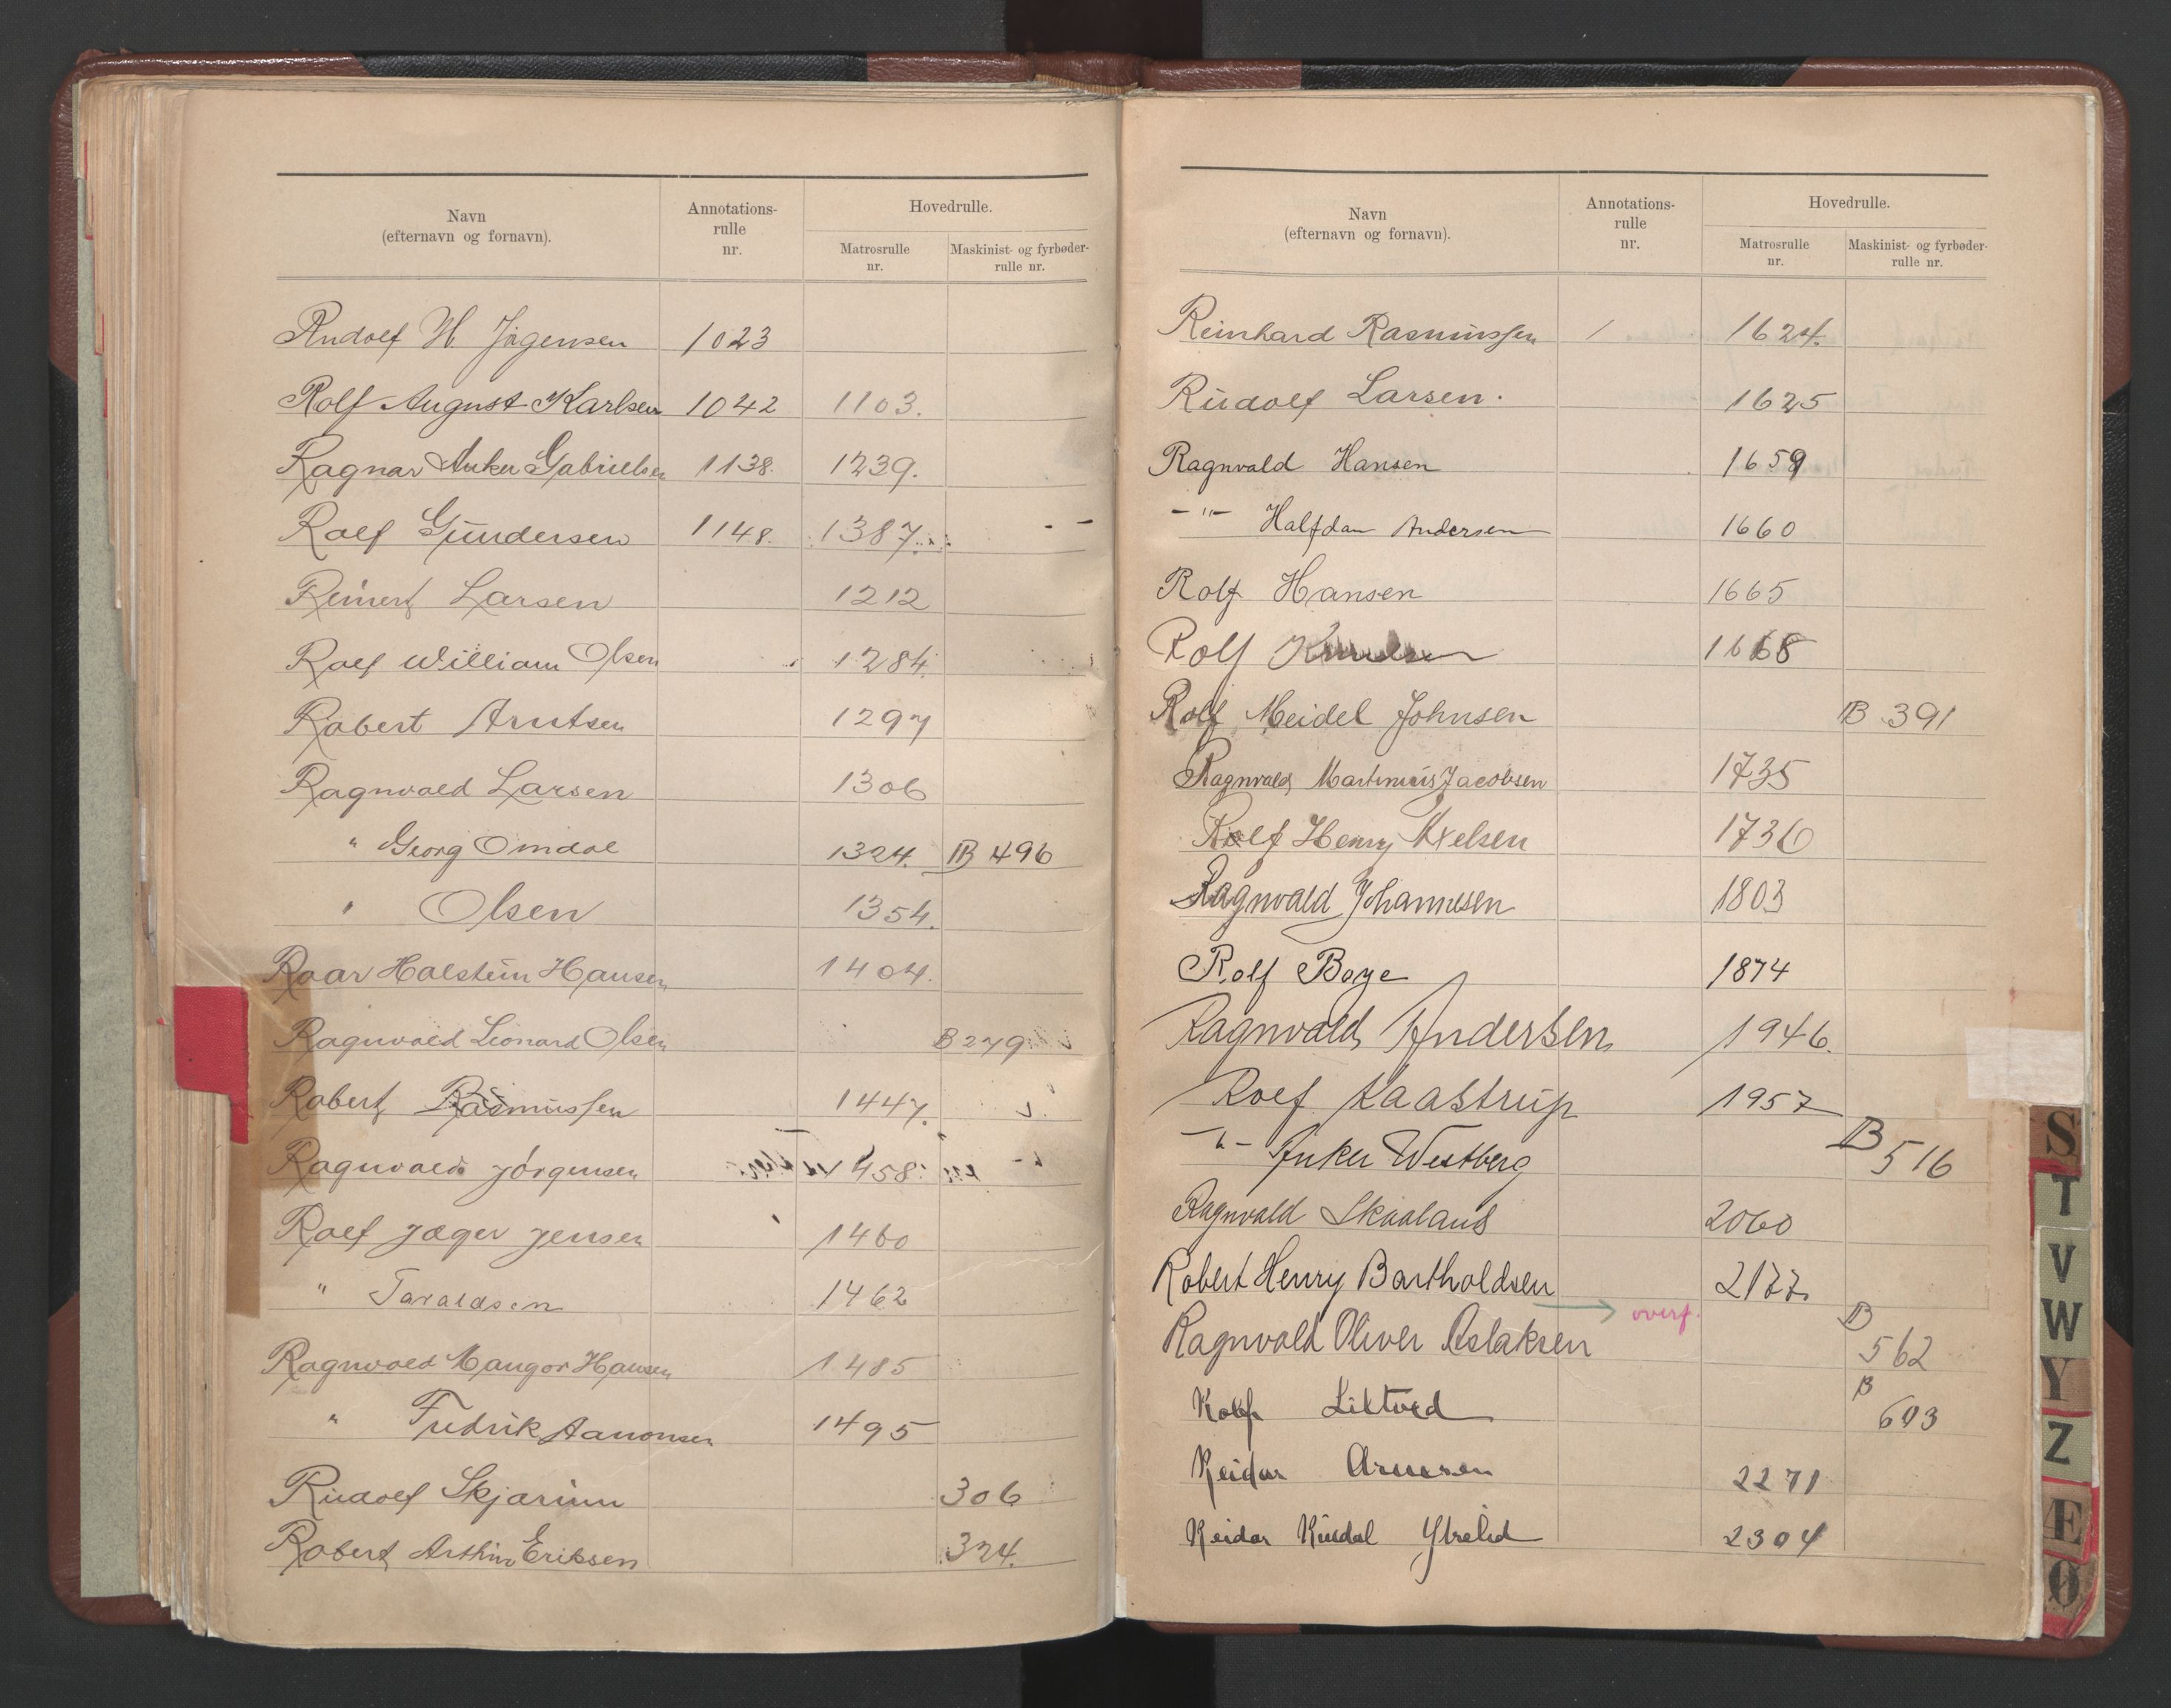 Navn
(efternavn og fornavn).
Annotations-
rulle
nr.
Hovedrulle.
Matrosrulle
nr.
Maskinist- og fyrbøder-
rulle nr.
Rudolf H. Jögensen 1023
Rolf August Karlsen 1042 1103.
Ragnar Anker Gabrielsen 1138. 1239.
Rolf Gundersen 1148. 1387.
Reinert Larsen 1212
Rolf William Olsen 1284.
Robert Arntsen 1297
Ragnvald Larsen 1306
" Georg Omdal 1324. B 496
" Olsen 1354.
Roar Holstein Hansen 1404.
Ragnvald Leonard Olsen B 279
Robert Rasmussen 1447.
Ragnvald Jörgensen 1458.
Rolf Jæger Jensen 1460
" Taraldsen 1462
Ragnvald Mangor Hansen 1485
" Fredrik Aanonsen 1495
Rudolf Skjarum 306
Robert Arthur Eriksen 324.
Navn
(efternavn og fornavn).
Annotations-
rulle
nr.
Hovedrulle.
Matrosrulle
nr.
Maskinist- og fyrbøder-
rulle nr.
Reinhard Rasmussen 1624.
Rudolf Larsen. 1625
Ragnvald Hansen 1659
-"- Halfdan Andersen 1660
Rolf Hansen 1665
Rolf Knudsen 1668
Rolf Meidel Johnsen B 391
Ragnvald Martinius Jacobsen 1735
Rolf Henry Axelsen 1736
Ragnvald Johannesen 1803
Rolf Boye 1874
Ragnvald Andersen 1946.
Rolf Kaastrup 1957
-"- Anker Westberg B 516
Ragnvald Skaaland 2060
Robert Henry Bartholdsen 2177.
→ overf.
Ragnvald Oliver Aslaksen B 562
Rolf Liltved B 603
Reidar Arnesen 2271
Reidar Ytrelid 2304
S
T
V
W
Y
Z
Æ
Ø